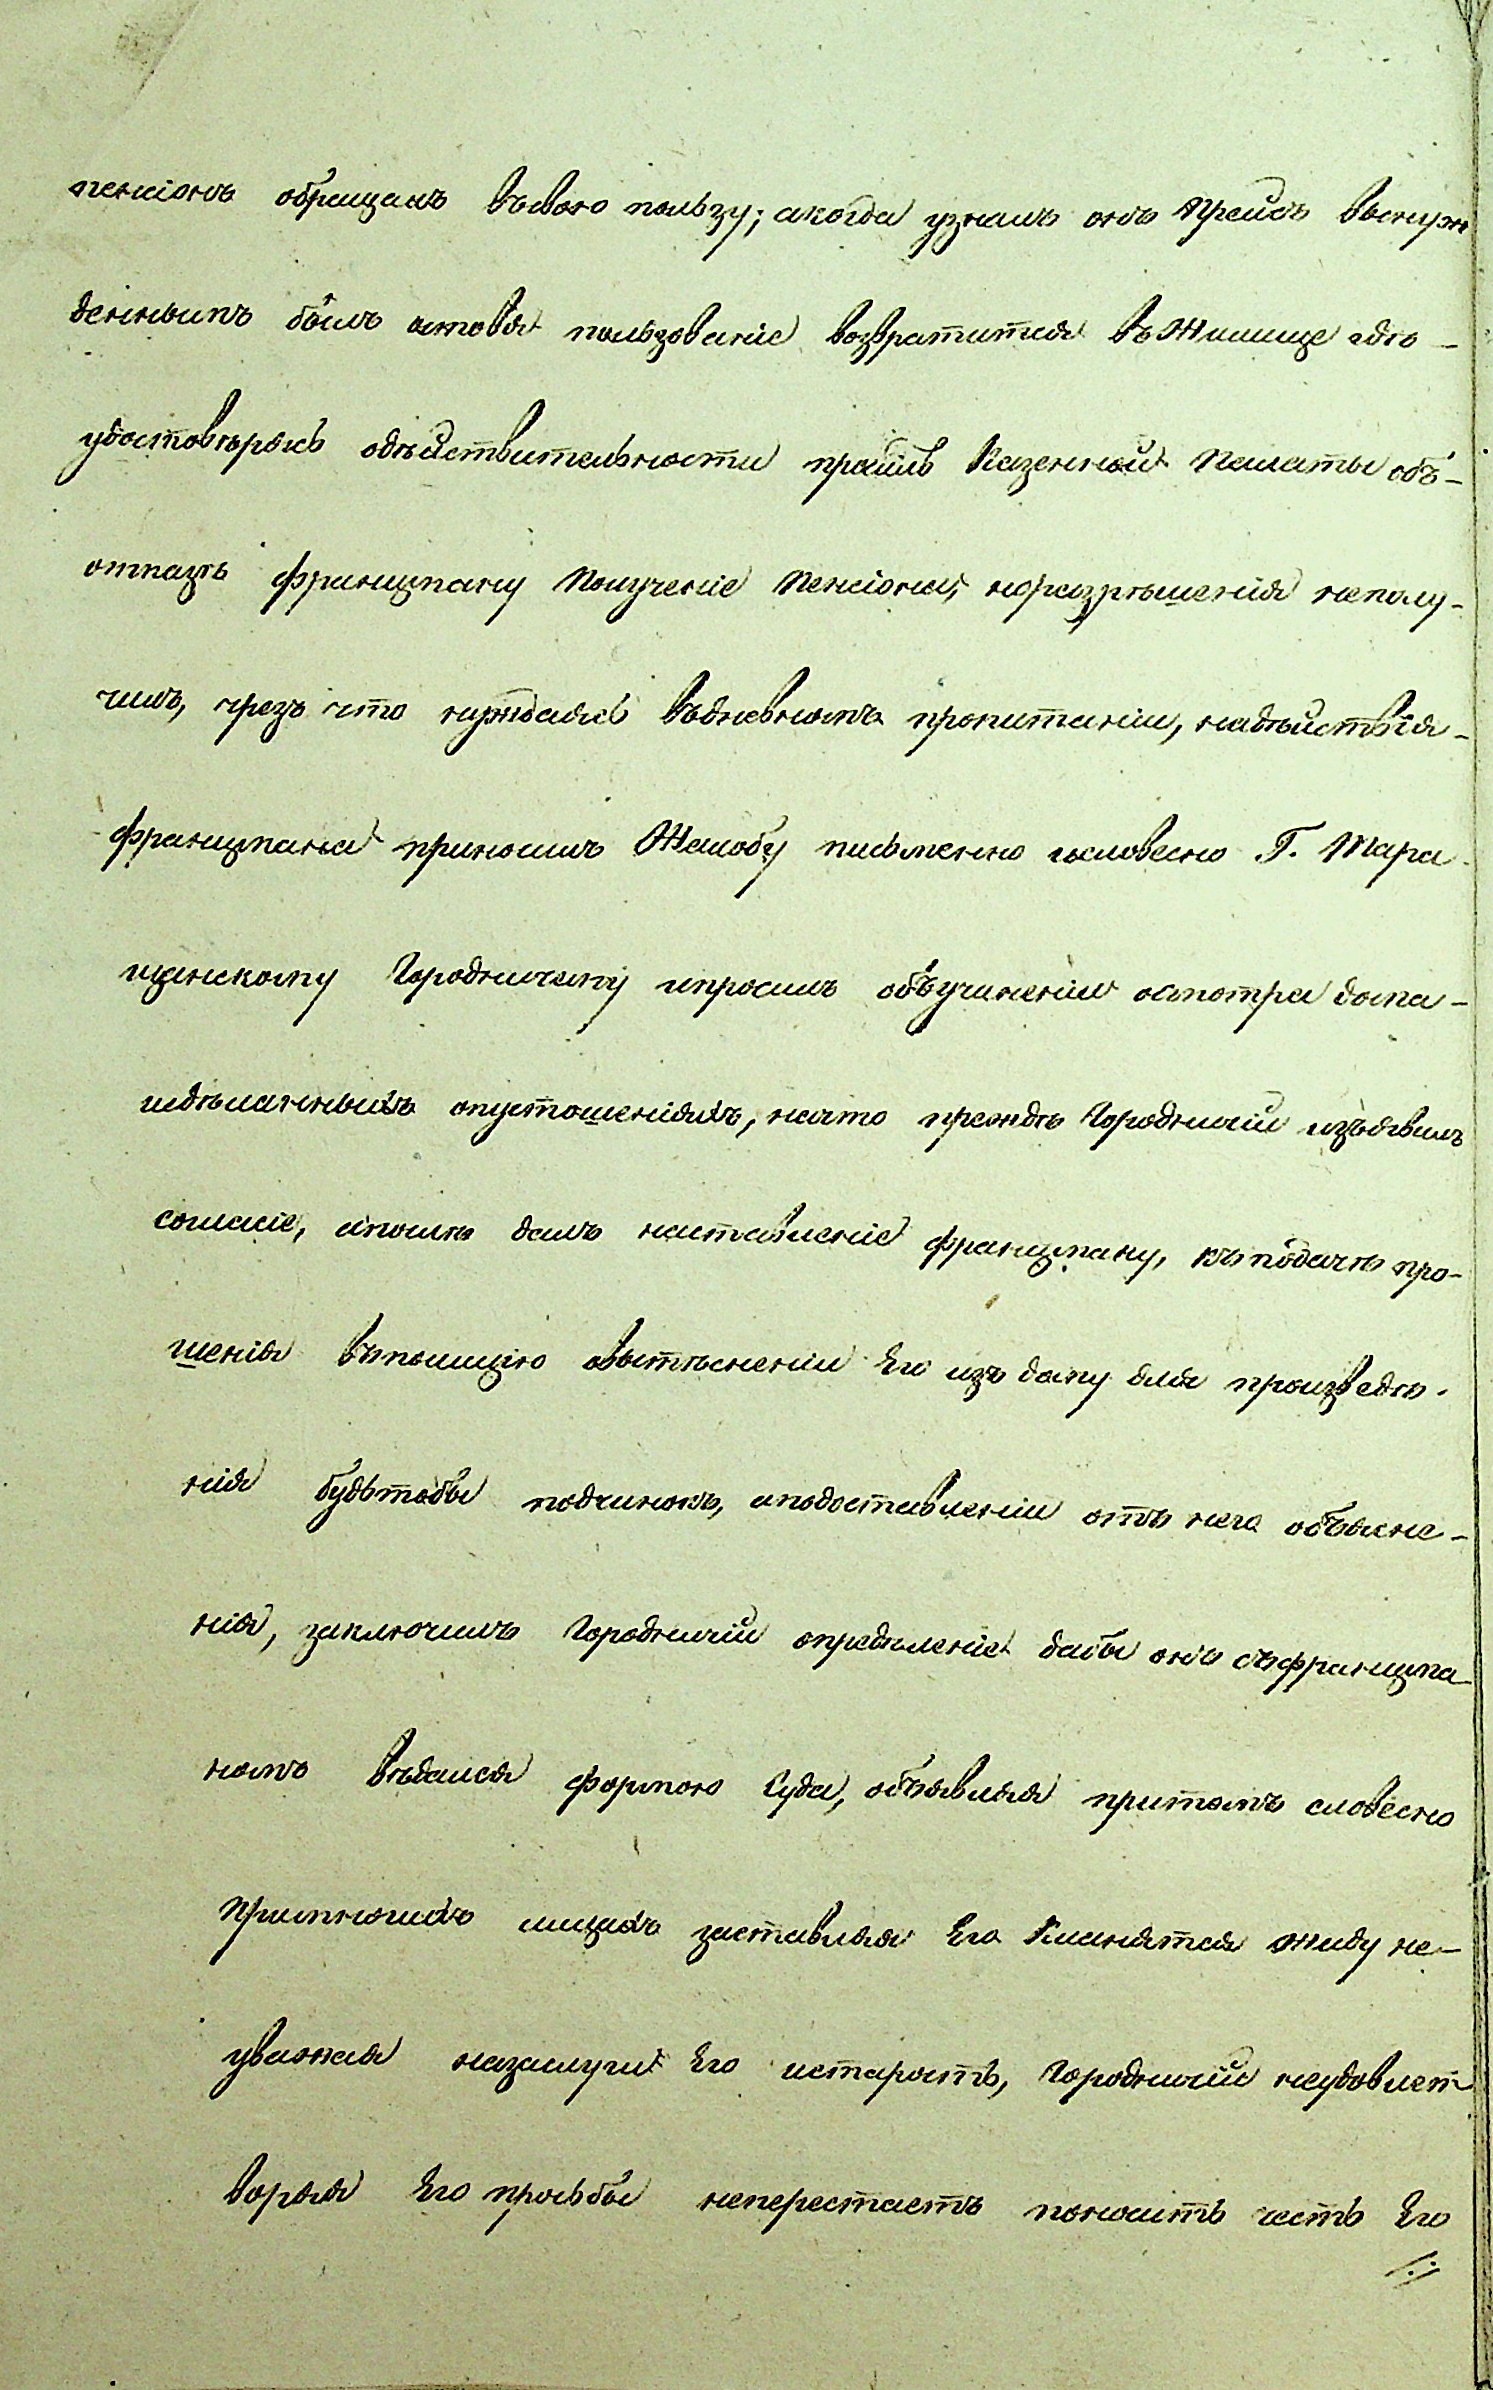 пенсіонъ обращалъ въсвою пользу; акогда узналъ онъ Прейсъ вынуж
деннымъ былъ оставя пользованіе возвратится въ Жилище гдѣ –
удостовѣрясь одѣйствительности просилъ Казенной Палаты объ –
отказѣ Францкану Полученіе Пенсіона, норазрѣшенія неполу-
чилъ, чрезъ что нуждаясь въдневномъ пропитаніи, надѣйствія –
Францкана приносилъ Жалобу письменно исловесно Г. Мара
щанскому Городничему ипросилъ объучиненіи осмотра дома –
исдѣланныхъ опустошеніяхъ, начто прежде Городничій изъявилъ
согласіе, апослѣ далъ наставленіе Францкану, къ подачѣ про-
шенія въполицію овытѣсненіи Его изъ дому для произведѣ-
нія будьтобы подчинокъ, аподоставленіи отъ него объясне –
нія, заключилъ Городничій опредѣленіе дабы онъ съФранцка
номъ вѣдался формою Суда, объявляя притомъ словесно
Примногихъ лицахъ заставляя Его Кланятся жиду не –
уважая назаслуги Его истарость, Городничій неудовлет
воряя Его прозьбы неперестаетъ поносить честь Его